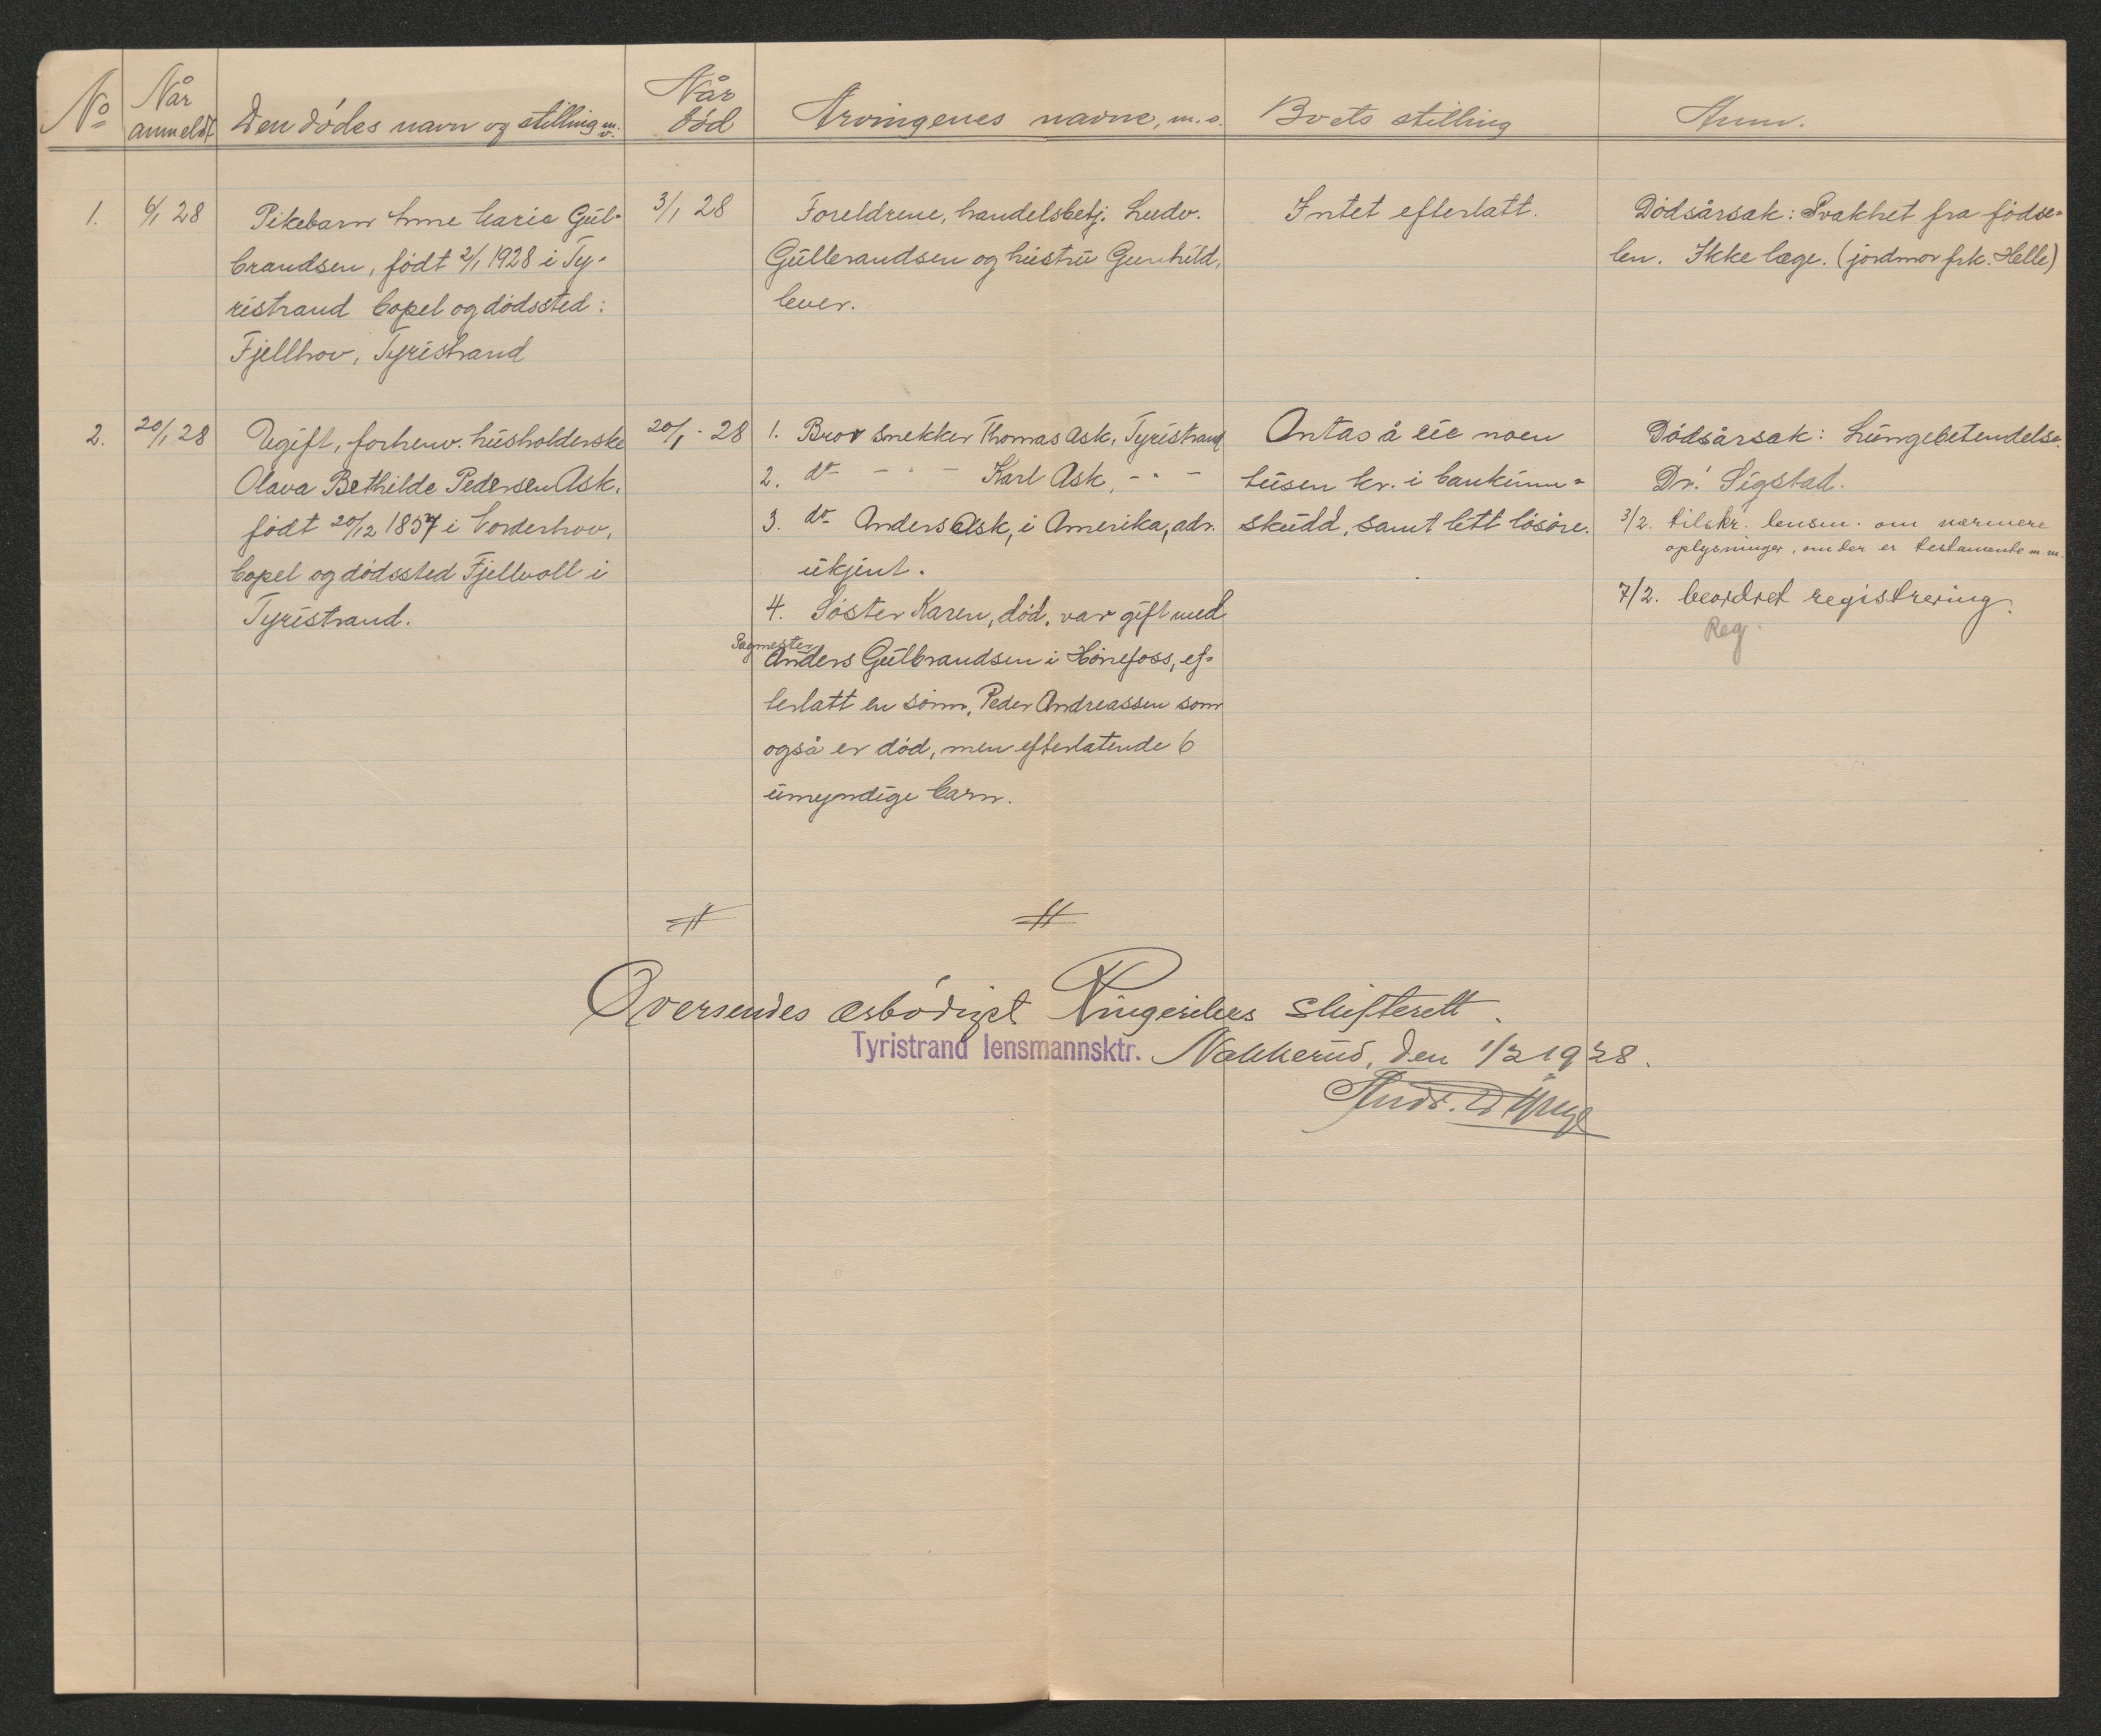 No
Når anmeldt
Den dødes navn og stilling m.v.
Når død
Arvingenes navne, m.v.
Boets stilling
Anm.
1.
6/1 28
Pikebarn Anne Marie Gul-
brandsen, født 2/1 1928 i Ty-
ristrand bopel og dødssted:
Fjellhov, Tyristrand
3/1 28
Foreldrene, handelsbetj. Ludv.
Gulbrandsen og hustru Gunhild,
lever.
Intet efterlatt.
Dødsårsak: Svakhet fra fødse-
len. Ikke læge. (jordmor frk. Helle)
2.
20/1 28
Ugift, forhenv. husholderske
Olava Bethilde Pedersen Ask,
født 20/12 1857 i Norderhov,
bopel og dødssted Fjellvoll i
Tyristrand.
20/1 - 28
1. Bror Snekker Thomas Ask, Tyristrand
2. do - " - Karl Ask, - " -
3. do Anders Ask, i Amerika, adr.
ukjent.
4. Søster Karen, død, var gift med
Sagmester
Anders Gulbrandsen i Hønefoss, ef-
terlatt en sønn, Peder Andreassen som
også er død, men efterlatende 6
umyndige barn.
Antas å eie noen
tusen kr. i bankinn-
skudd, samt litt løsøre.
Dødsårsak: Lungebetendelse.
Dr. Sigstad.
3/2. tilskr. lensm. om nærmere
oplysninger, om der er testamente m.m.
7/2. beordret registrering.
Reg.
Oversendes ærbødigst Ringerikes skifterett.
Tyristrand lensmannsktr. Nakkerud, den 1/2 1928.
Andr.